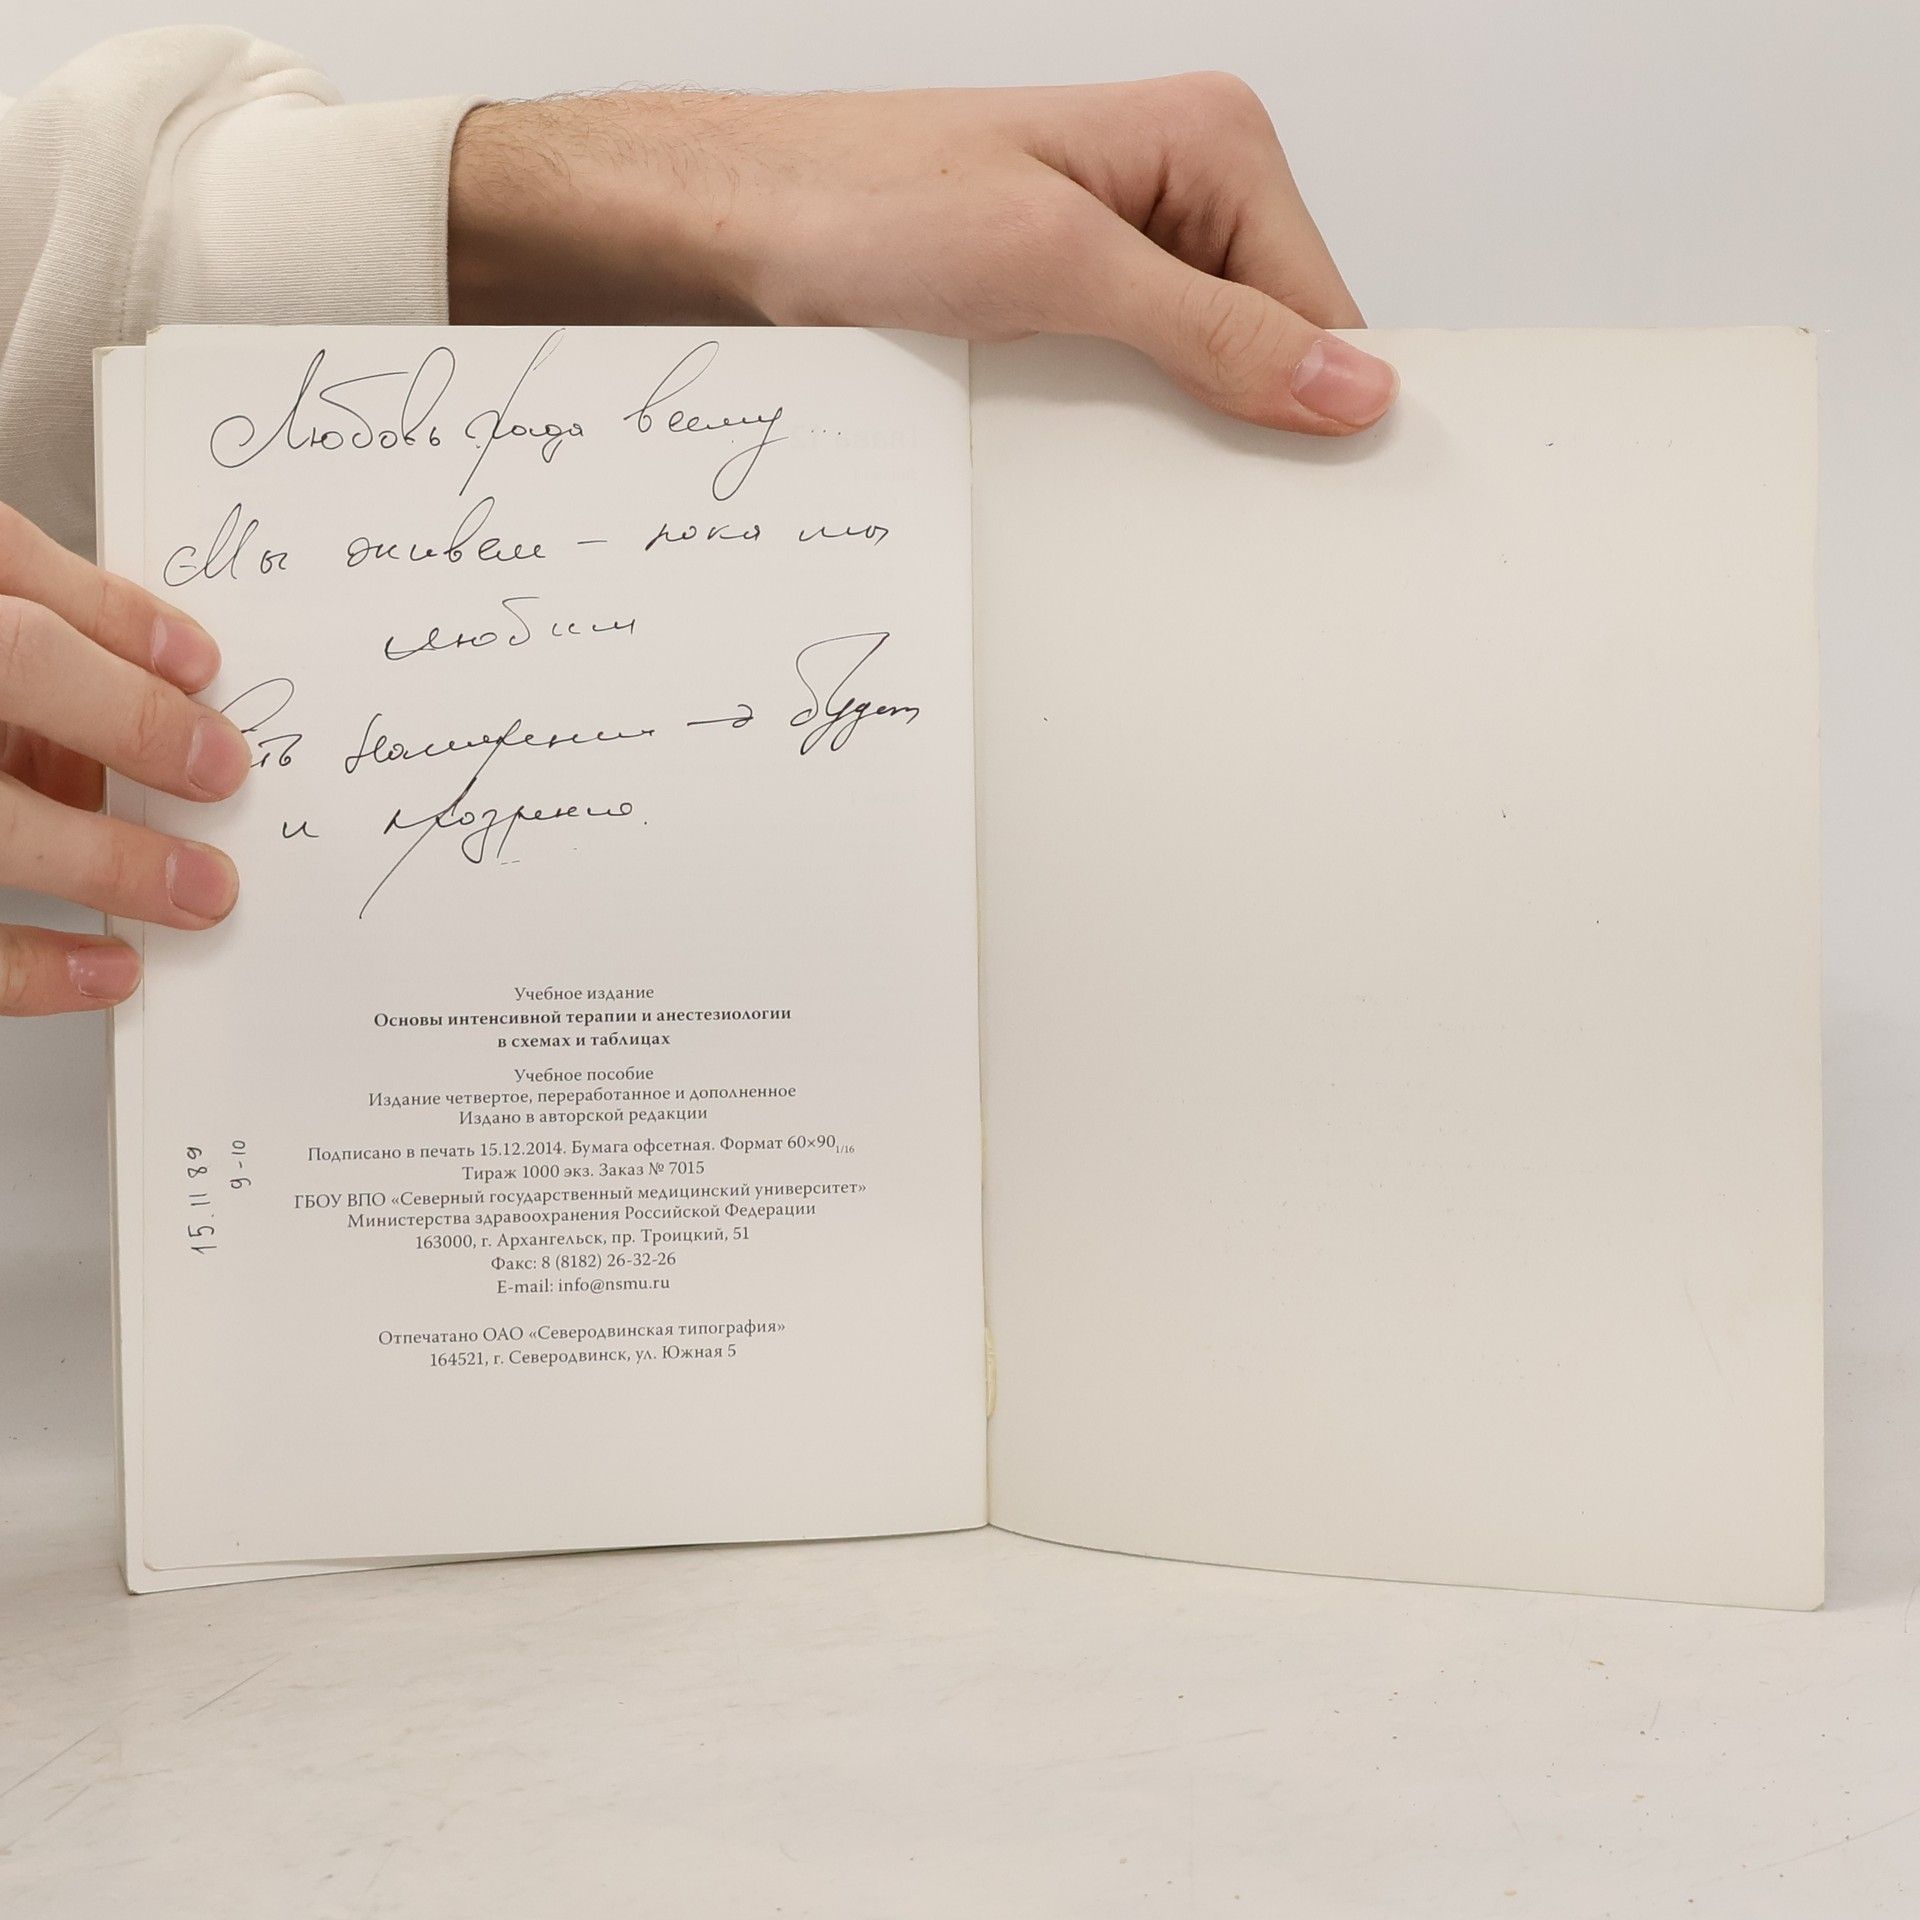 Любовь рада всему...
Мы живем – пока мы
любим
намерения → будет
и
Учебное издание
Основы интенсивной терапии и анестезиологии
в схемах и таблицах
Учебное пособие
Издание четвертое, переработанное и дополненное
Издано в авторской редакции
Подписано в печать 15.12.2014. Бумага офсетная. Формат 60×90 1/16
Тираж 1000 экз. Заказ № 7015
ГБОУ ВПО «Северный государственный медицинский университет»
Министерства здравоохранения Российской Федерации
163000, г. Архангельск, пр. Троицкий, 51
Факс: 8 (8182) 26-32-26
E-mail: info@nsmu.ru
Отпечатано ОАО «Северодвинская типография»
164521, г. Северодвинск, ул. Южная 5
15.11 89
9-10